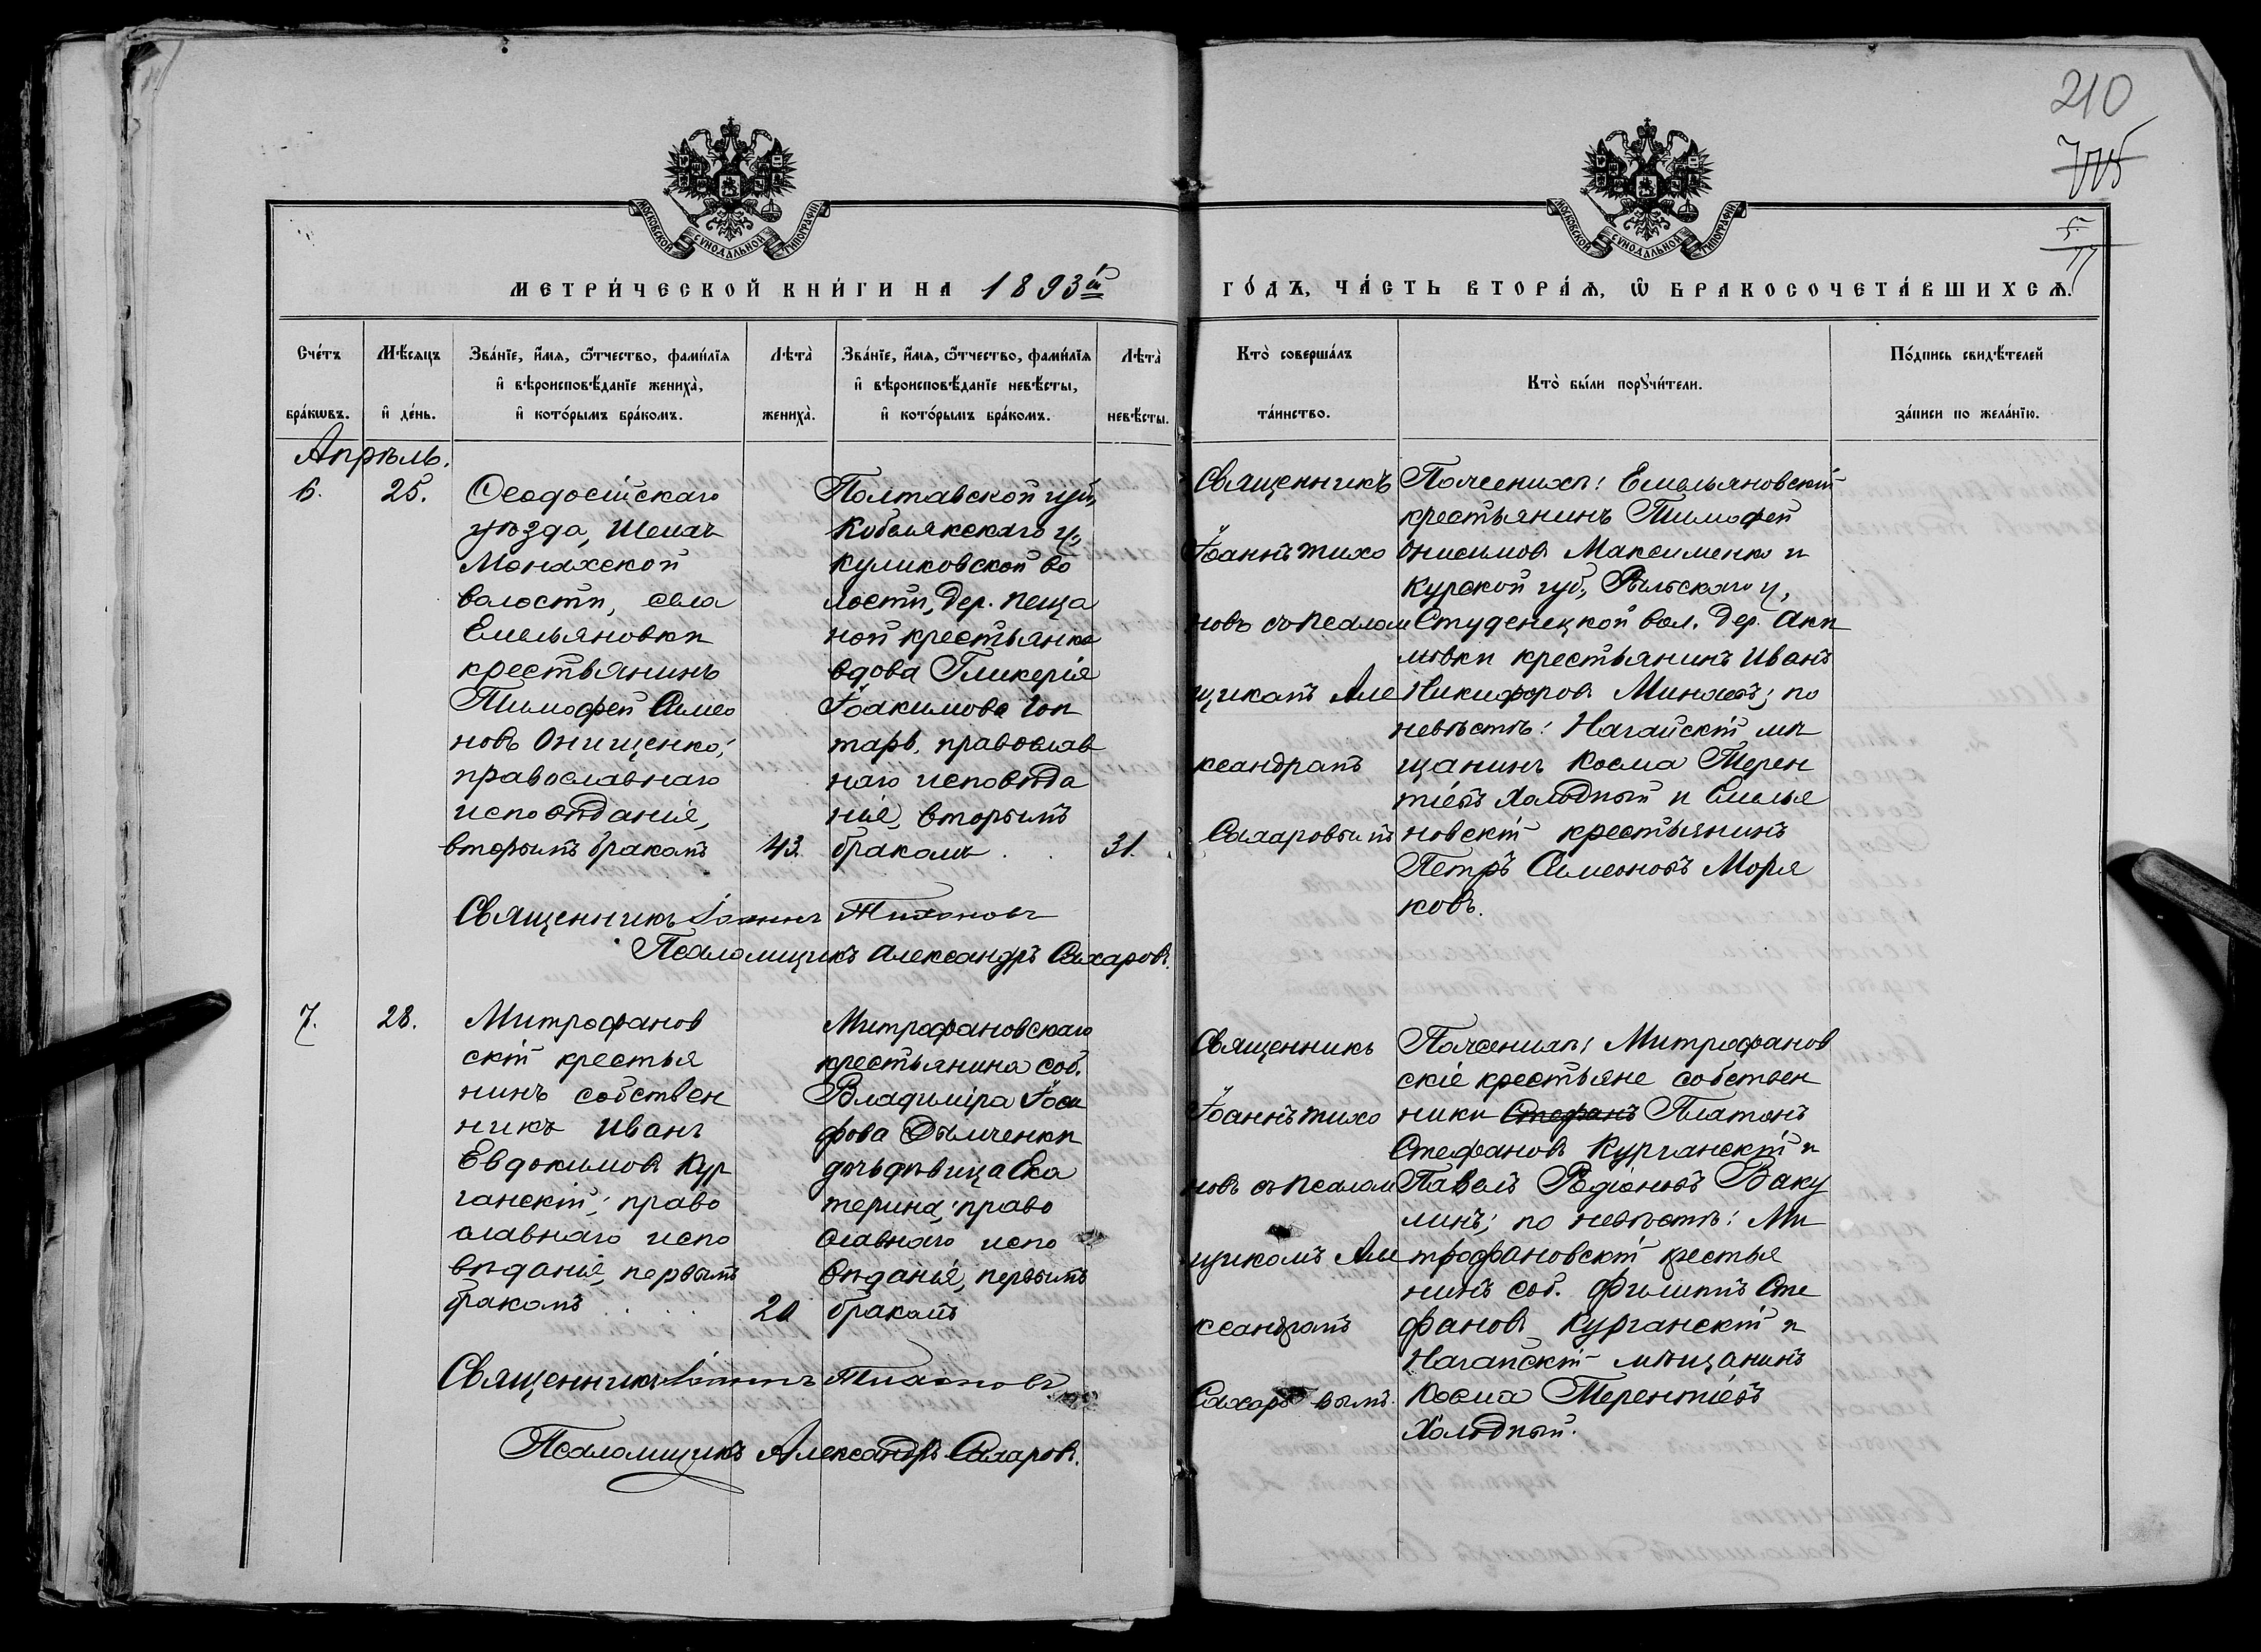 210
5.
МОСКОВСКОЙ СѴНОДАЛЬНОЙ ТИПОГРАФІИ
МОСКОВСКОЙ СѴНОДАЛЬНОЙ ТИПОГРАФІИ
МЕТРИ́ЧЕСКОЙ КНИ́ГИ НА 1893й
ГО́ДЪ, ЧА́СТЬ ВТОРА́Ѧ, Ѽ БРАКОСОЧЕТА́ВШИХСѦ.
Сче́тъ бра́кѡвъ.
Мѣ́сяцъ и҆ де́нь.
Зва́нїе, и҆́мѧ, ѻ҆́тчество, фами́лїѧ
и҆ вѣроисповѣ́данїе жениха̀,
и҆ кото́рымъ бра́комъ.
Лѣта̀ жениха̀.
Зва́нїе, и҆́мѧ, ѻ҆́тчество, фами́лїѧ
и҆ вѣроисповѣ́данїе невѣ́сты,
и҆ кото́рымъ бра́комъ.
Лѣта̀ невѣ́сты.
Кто̀ соверша́лъ
та́инство.
Кто̀ бы́ли порꙋчи́тели.
По́дпись свидѣ́телей
за́писи по жела́нїю.
Апрѣль.
6.
25.
Ѳеодосійскаго
уѣзда, Шейхъ
Монахской
волости, села
Емельяновки
крестьянинъ
Тимофей Симео
новъ Онищенко;
православнаго
исповѣданія,
вторымъ бракомъ
43.
Полтавской губ,
Кобелякскаго у,
Куликовской во
лости, дер. Пеща
ной крестьянка
вдова Гликерія
Іоакимова Гон
тарь, православ
наго исповѣда
нія, вторымъ
бракомъ
31.
Священникъ
Іоаннъ Тихо
новъ съ псалом
щикомъ Але
ксандромъ
Сахаровымъ
По женихѣ: Емельяновскій
крестьянинъ Тимофей
Онисимовъ Максименко и
Курской губ., Рыльскаго у,
Студенецкой вол. дер. Аки
мовки крестьянинъ Иванъ
Никифоровъ по
невѣстѣ: Нагайскій мѣ
щанинъ Косма Терен
тіевъ Холодный и Емелья
новскій крестьянинъ
Петръ Симеоновъ Моря
ковъ.
Священникъ Іоаннъ Тихоновъ
Псаломщикъ Александръ Сахаровъ.
7.
28.
Митрофанов
скій крестья
нинъ собствен
никъ Иванъ
Евдокимовъ Кур
ганскій; право
славнаго испо
вѣданія, первымъ
бракомъ
20
Митрофановскаго
крестьянина соб.
Владиміра Іоси
фова Дымченки
дочь дѣвица Ека
терина, право
славнаго испо
вѣданія, первымъ
бракомъ
Священникъ
Іоаннъ Тихо
новъ съ псалом
щикомъ Але
ксандромъ
Сахаровымъ.
По женихѣ: Митрофанов
скіе крестьяне собствен
ники Стефанъ Платонъ
Стефановъ Курганскій и
Павелъ Родіоновъ Ваку
линъ; по невѣстѣ: Ми
трофановскій крестья
нинъ соб. Филиппъ Сте
фановъ Курганскій и
Нагайскій мѣщанинъ
Косма Терентіевъ
Холодный.
Священникъ Іоаннъ Тихоновъ
Псаломщикъ Александръ Сахаровъ.